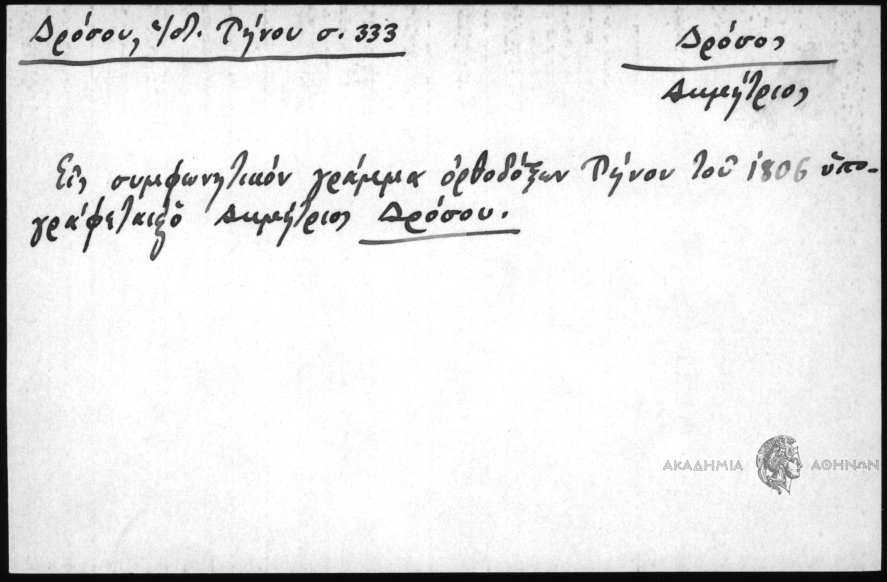 Δρόσου, ἱστ. Τήνου σ. 333
Δρόσος
Δημήτριος
Εἰς συμφωνητικόν γράμμα ὀρθοδόξων Τήνου τοῦ 1806 ὑπο-
γράφεται ὁ Δημήτριος Δρόσου.
ΑΚΑΔΗΜΙΑ ΑΘΗΝΩΝ